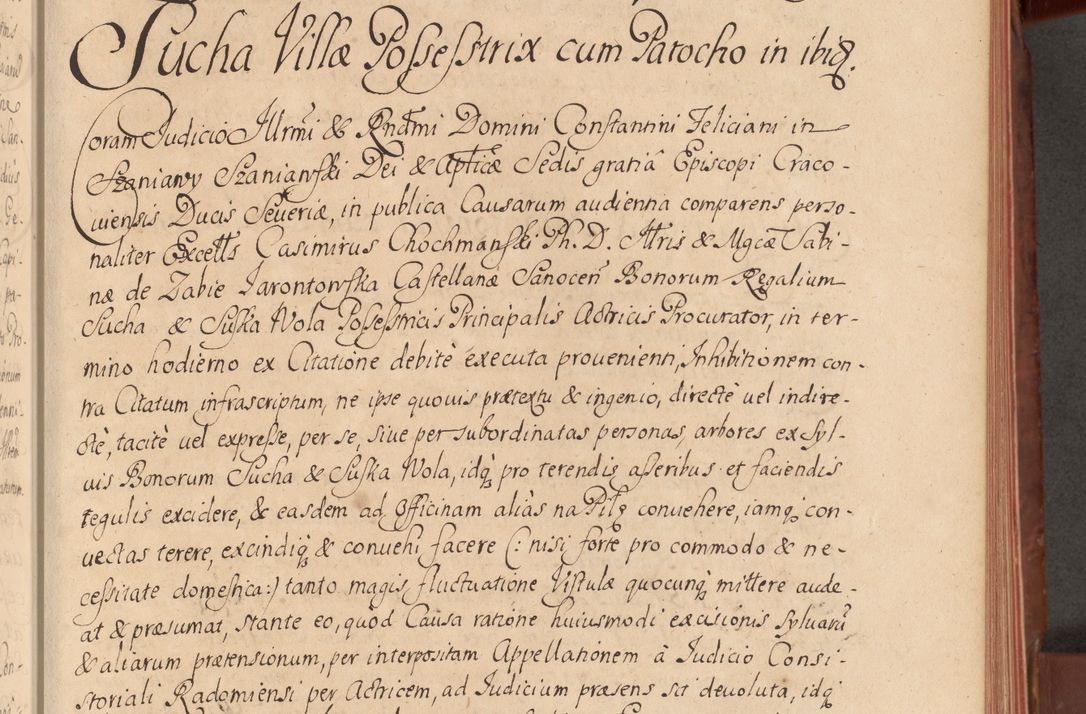 Sucha Villæ Possessrix cum Parocho in ibiq̃.
Coram Judicio Illrmi & Rndmi Domini Constantini Feliciani in
Szaniawy Szaniawski Dei & Apticæ Sedis gratiâ Episcopi Craco-
viensis Ducis Severiæ, in publica Causarum audientia comparens perso-
naliter Excells Casimirus Chochmanski Ph. D. Illris & Mgcæ Sabi-
næ de Zabie Jarontowska Castellanæ Sanocen Bonorum Regalium
Sucha & Suska Wola Possestricis Principalis Actricis Procurator, in ter-
mino hodierno ex Citatione debitè executa provenienti, Inhibitionem con-
tra Citatum infrascriptum, ne ipse quovis prætextu & ingenio, directè vel indire-
ctè, tacitè vel expresse, per se, sive per subordinatas personas, arbores ex syl-
vis Bonorum Sucha & Suska Wola, idq̃ pro terendis asseribus et faciendis
tegulis excidere, & easdem ad Officinam aliàs na Piłę convehere, iamq̃ con-
vectas terere, excindiq̃ & convehi facere (: nisi forte pro commodo & ne-
cessitate domestica:) tanto magis fluctuatione Vistulæ quocunq̃ mittere aude-
at & præsumat, stante eo, quod Causa ratione huiusmodi excisionis sylvarũ
& aliarum prætensionum, per interpositam Appellationem à Judicio Consi-
storiali Radomiensi per Actricem, ad Judicium præsens sit devoluta, idq̃